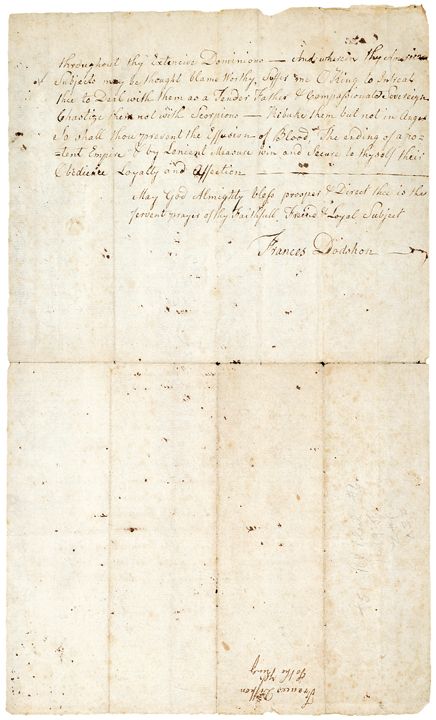 throughout thy Extencive Dominions — And wherein thy American
Subjects may be thought blame Worthy, Suffer me O King to Intreat
thee to Deal with them as a Tender Father & Compassionate Sovereign
Chastize them not with Scorpions — Rebuke them but not in Anger
So shall thou prevent the Effusion of Blood The ending of a po=
=tent Empire & by Lenient Measure win and Secure to thyself their
Obedience Loyalty and Affection
May God Almighty bless prosper & Direct thee is the
fervent prayer of thy Faithfull Friend & Loyal Subject
Frances Dodshon
Frances Dodshon
to the King